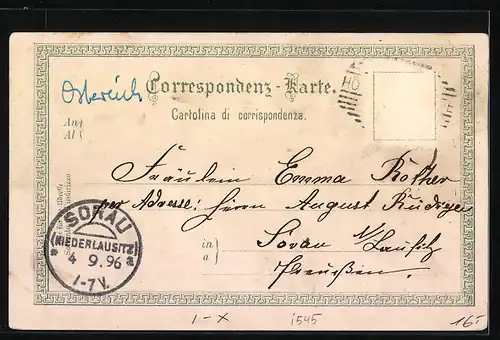 Östereich
Correspondenz-Karte.
Cartolina di corrispondenza.
An
Al
HO
Fräulein Emma Röther
per Adresse: Herrn August Rüdiger
in
a
Sorau N/Lausitz
Preußen.
SORAU
(NIEDERLAUSITZ)
* a
4 9. 96
1-7V.
1-X
i545
16,-